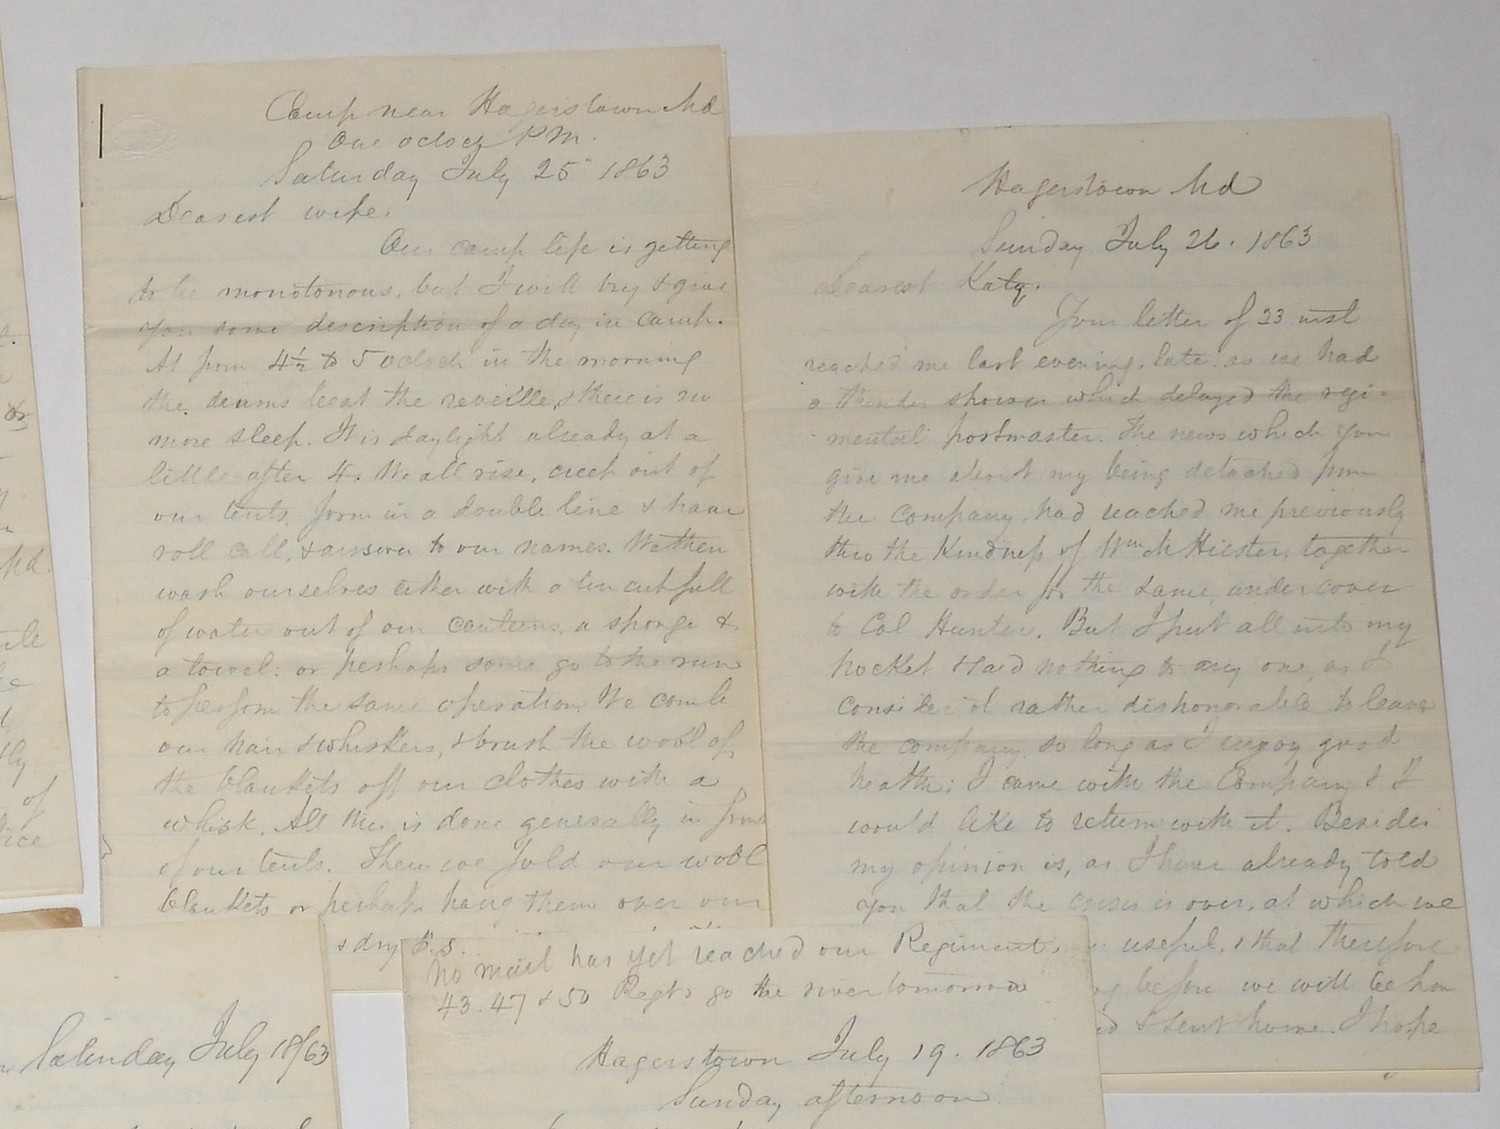 Camp near Hagerstown Md
One oclock P M.
Saturday July 25" 1863
Dearest wife.
Our camp life is getting
to be monotonous, but I will try & give
you some description of a day in camp.
At from 4½ to 5 oclock in the morning
the drums beat the reveille, & there is no
more sleep. It is daylight already at a
little after 4. We all rise, creep out of
our tents, form in a double line & have
roll call, & answer to our names. We then
wash ourselves either with a tin cup full
of water out of our canteens, a sponge &
a towel: or perhaps some go to the run
to perform the same operation. We comb
our hair & whiskers, & brush the wool of
the blankets off our clothes with a
whisk. All this is done generally in front
of our tents. Then we fold our wool
blankets or perhaps hang them over our
& dry
Hagerstown Md
Sunday July 26. 1863
Dearest Katy.
Your letter of 23 inst
reached me last evening, late, as we had
a thunder shower which delayed the regi-
mental postmaster. The news which you
give me about my being detached from
the company, had reached me previously
thro the Kindness of Wm M Hiester, together
with the order for the same, under cover
to Col Hunter. But I put all into my
pocket & said nothing to any one, as I
consider it rather dishonorable to leave
the company so long as I enjoy good
health; I came with the Company & I
would like to return with it. Besides
my opinion is, as I have already told
you that the crisis is over, at which we
useful, & that therefore
before we will be
& sent home. I hope
Saturday July 18/63
P.S.
No mail has yet reached our Regiment.
43. 47 & 50 Regts go the river tomorrow
Hagerstown July 19. 1863
Sunday afternoon
Md.
of